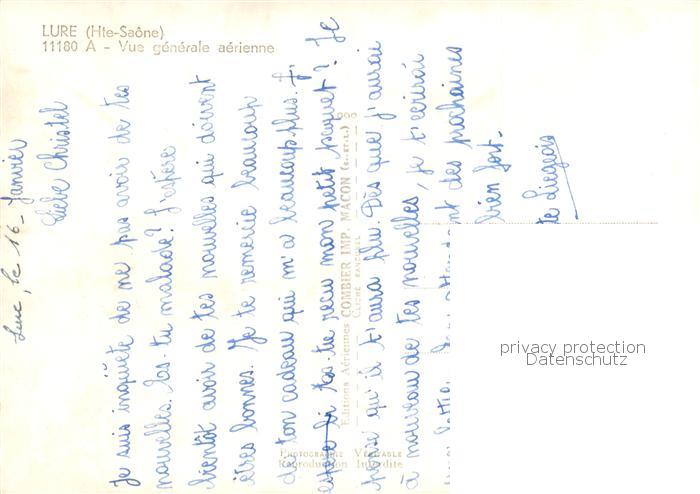 LURE (Hte-Saône)
11180 A - Vue générale aérienne
Lure, le 16 - Janvier
Liebe Christel
Je suis inquiète de ne pas avoir de tes
nouvelles. Es-tu malade? J'espère
bientôt avoir de tes nouvelles qui doivent
êtres bonnes. Je te remercie beaucoup
de ton cadeau qui m'a beaucoup plus. J'
espère si tu as reçu mon petit paquet? Je
pense qu'il t'aura plu. Dès que j'aurai
à nouveau de tes nouvelles, je t'écrirai
une lettre. attendant des prochaines
bien fort -
te Liegeois
Editions Aériennes COMBIER IMP. MACON (S.-ET-L.)
PHOTOGRAPHIE VÉRITABLE
Reproduction Interdite
privacy protection
Datenschutz